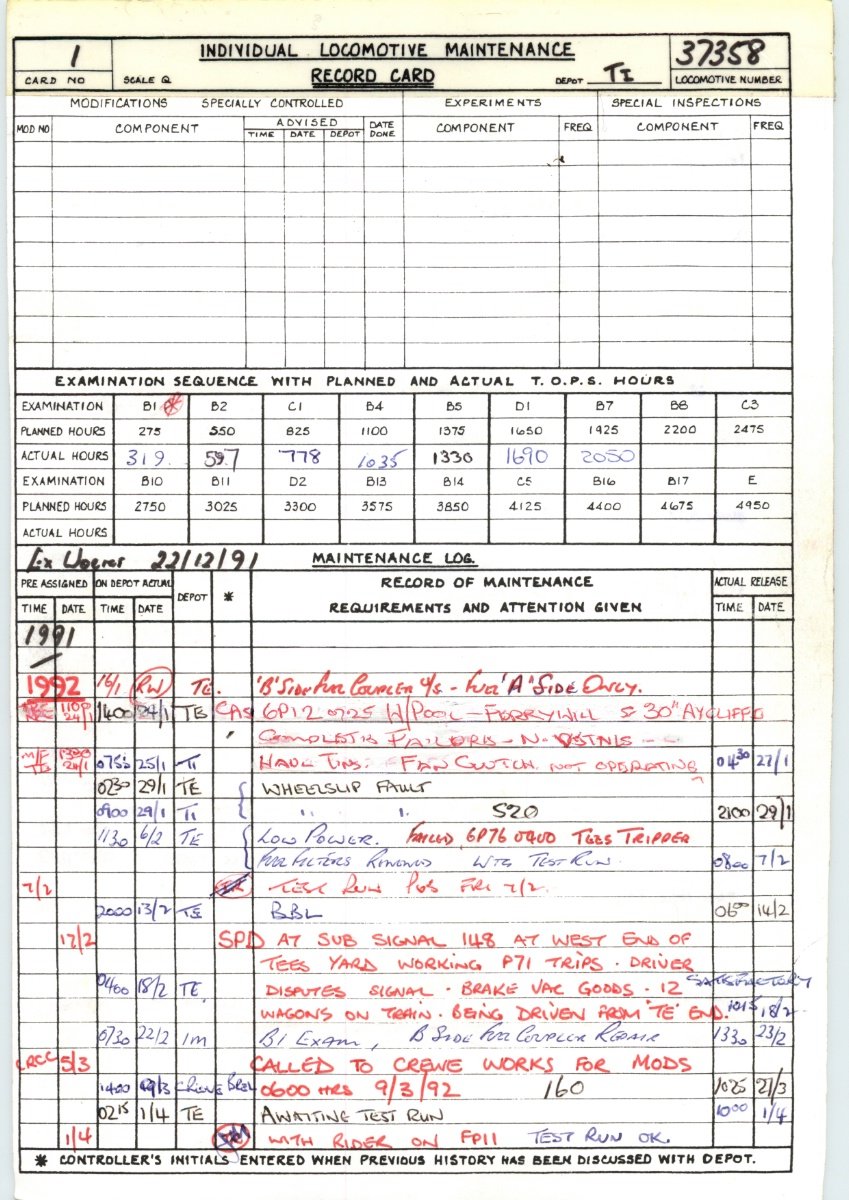 1 INDIVIDUAL LOCOMOTIVE MAINTENANCE 37358
CARD NO SCALE Q RECORD CARD DEPOT TI LOCOMOTIVE NUMBER
MODIFICATIONS SPECIALLY CONTROLLED EXPERIMENTS SPECIAL INSPECTIONS
MOD NO COMPONENT ADVISED DATE DONE COMPONENT FREQ COMPONENT FREQ
TIME DATE DEPOT
EXAMINATION SEQUENCE WITH PLANNED AND ACTUAL T.O.P.S. HOURS
EXAMINATION B1 B2 C1 B4 B5 D1 B7 B8 C3
PLANNED HOURS 275 550 825 1100 1375 1650 1925 2200 2475
ACTUAL HOURS 319. 597 778 1035 1330 1690 2050
EXAMINATION B10 B11 D2 B13 B14 C5 B16 B17 E
PLANNED HOURS 2750 3025 3300 3575 3850 4125 4400 4675 4950
ACTUAL HOURS
Ex 22/12/91 MAINTENANCE LOG.
PRE ASSIGNED ON DEPOT ACTUAL DEPOT * RECORD OF MAINTENANCE ACTUAL RELEASE
TIME DATE TIME DATE REQUIREMENTS AND ATTENTION GIVEN TIME DATE
1991
1992 16/1 RW TE. 'B' SIDE FUEL COUPLER U/S - FUEL 'A' SIDE ONLY.
24/1 1400 24/1 TE CAS 6P12 0725 W/POOL - FERRYHILL 30" AYCLIFFE
COMPLETE FAILURE
1300 0755 25/1 TI FAN CLUTCH NOT OPERATING 0430 27/1
0230 29/1 TE WHEELSLIP FAULT
0900 29/1 TI " " 520 2100 29/1
1130 6/2 TE LOW POWER. FAILED 6P76 0400 TEES TRIPPER
FUEL FILTERS RENEWED WTG TEST RUN 0800 7/2
7/2 TEST RUN P65 FRI 7/2.
2000 13/2 TE BBL 0600 14/2
17/2 SPD AT SUB SIGNAL 148 AT WEST END OF
TEES YARD WORKING P71 TRIPS. DRIVER
0400 18/2 TE, DISPUTES SIGNAL. BRAKE VAC GOODS. 12 SATISFACTORY
WAGONS ON TRAIN. BEING DRIVEN FROM 'TE' END. 1015 18/2
0730 22/2 IM B1 EXAM, B SIDE FUEL COUPLER REPAIR 1330 23/2
LRCC 5/3 CALLED TO CREWE WORKS FOR MODS
1400 9/3 CREWE BREL 0600 HRS 9/3/92 160 1025 21/3
0215 1/4 TE AWAITING TEST RUN 1000 1/4
1/4 WITH RIDER ON FP11 TEST RUN OK.
* CONTROLLER'S INITIALS ENTERED WHEN PREVIOUS HISTORY HAS BEEN DISCUSSED WITH DEPOT.